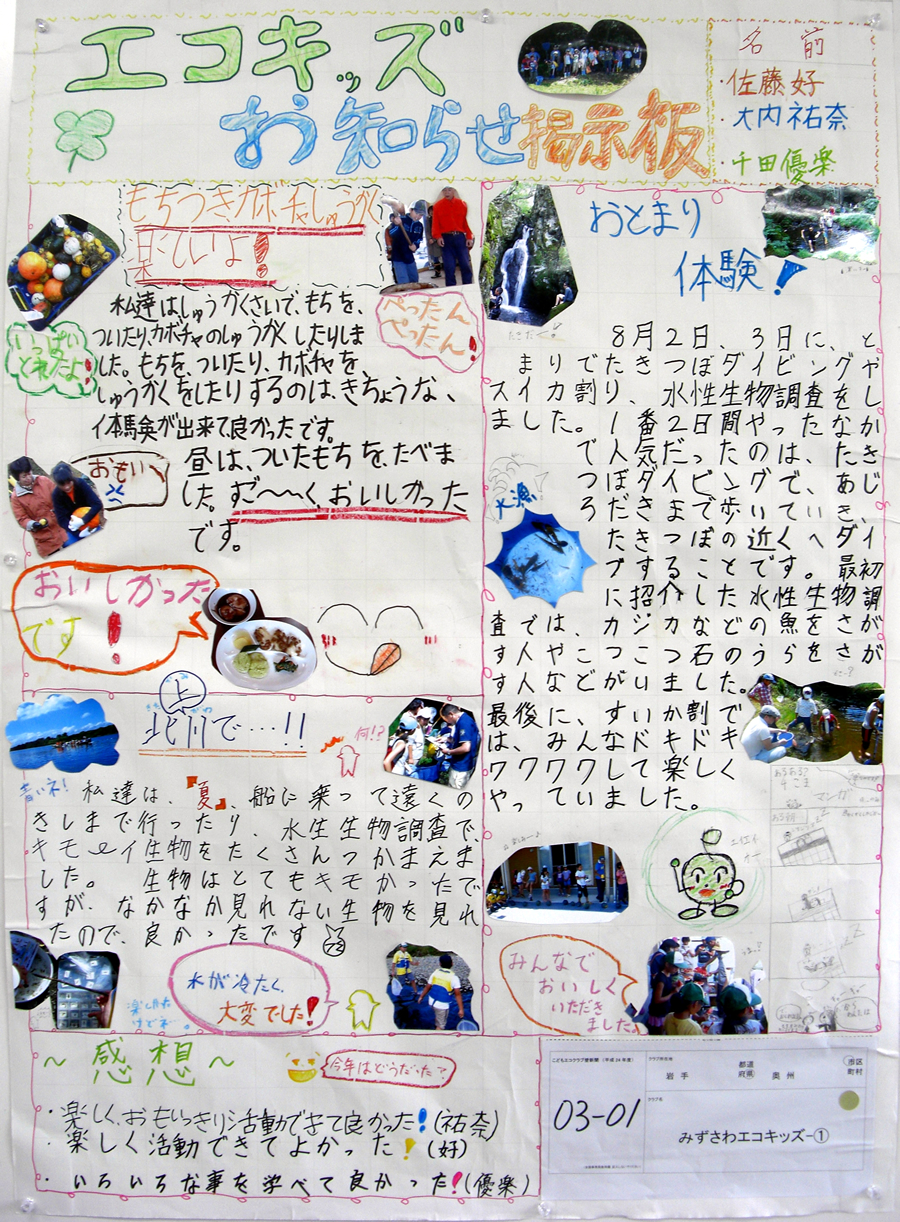 エコキッズ
お知らせ掲示板
名前
・佐藤好
・大内祐奈
・千田優楽
もちつきカボチャしゅうかく
楽しいよ!
私達はしゅうかくさいで、もちを、
ついたり、カボチャのしゅうかくしたりしま
した。もちを、ついたり、カボチャを、
しゅうかくをしたりするのは、きちょうな、
体験が出来て良かったです。
昼は、ついたもちを、たべま
した。すご〜〜く、おいしかった
です。
いっぱい
とれたよ!
ぺったん
ぺったん!
おもい
おいしかった
です!
おとまり
体験!
たきだー!
8月2日、3日に、と
まりでたきつぼダイビングや
スイカ割り、水性生物調査をし
ました。1番2日間やったなか
で人気だったのは、たき
つぼダイビングで、あじ
ろだきまで歩いていき、
たきつぼの近くへダイ
ブすることです。最初
に招介した水性生物調
査では、カジカなどの魚をさが
す人やこつこつ石のうらをさが
す人などがいました。
最後に、すいか割で
は、みんなドキドキ
ワクワクして楽しく
やっていました。
大漁
北上川で…!!
何!?
青いネ!
私達は、『夏』、船に乗って遠くの
きしまで行ったり、水生生物調査で、
キモイ生物をたくさんつかまえま
した。生物はとてもキモかったで
すが、なかなか見れない生物を見れ
たので、良かったです
水が冷たく、
大変でした!
みんなで
おいしく
いただき
ました。
マンガ
～感想～
今年はどうだった?
・楽しく、おもいっきり活動できて良かった!(祐奈)
・楽しく活動できてよかった!(好)
・いろいろな事を学べて良かった!(優楽)
こどもエコクラブ壁新聞(平成24年度)
03-01
クラブ所在地
岩手 都道府県 奥州 市区町村
クラブ名
みずさわエコキッズ-①